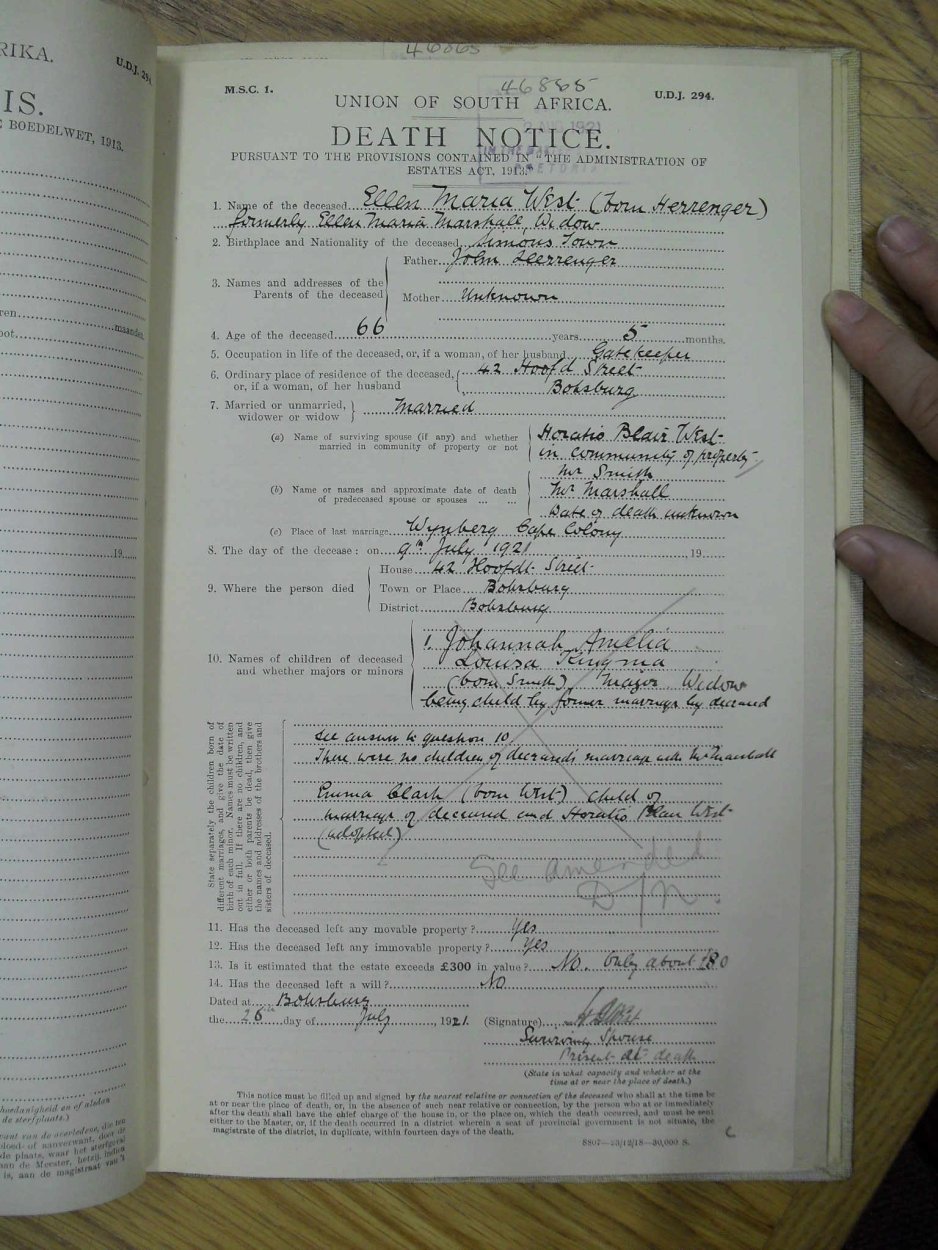 46865
RIKA.
U.D.J. 294
IS.
BOEDELWET, 1913.
M.S.C. 1.
46865
UNION OF SOUTH AFRICA.
U.D.J. 294.
1921
DEATH NOTICE.
PURSUANT TO THE PROVISIONS CONTAINED IN "THE ADMINISTRATION OF
ESTATES ACT, 1913."
1. Name of the deceased Ellen Maria West (born Herrenger)
formerly Ellen Maria Marshall, Widow
2. Birthplace and Nationality of the deceased Simons Town
3. Names and addresses of the Parents of the deceased
Father John Herrenger
Mother Unknown
4. Age of the deceased 66 years 5 months.
5. Occupation in life of the deceased, or, if a woman, of her husband Gatekeeper
6. Ordinary place of residence of the deceased, 42 Hoofd Street
or, if a woman, of her husband Boksburg
7. Married or unmarried, widower or widow Married
(a) Name of surviving spouse (if any) and whether Horatio Blair West
married in community of property or not in community of property
Mr Smith
(b) Name or names and approximate date of death Mr Marshall
of predeceased spouse or spouses ... ... Date of death unknown
(c) Place of last marriage Wynberg Cape Colony
8. The day of the decease: on 9th July 1921, 19
9. Where the person died
House 42 Hoofdt Street
Town or Place Boksburg
District Boksburg
10. Names of children of deceased and whether majors or minors
1. Johannah Amelia
Louisa Kingma
(born Smith) Major Widow
being child by former marriage by deceased
State separately the children born of
different marriages, and give the date of
birth of each minor. Names must be written
out in full. If there are no children, and
either or both parents be dead, then give
the names and addresses of the brothers and
sisters of deceased.
See answer to question 10.
There were no children of deceased's marriage with Mr Marshall
Emma Clark (born West) child of
marriage of deceased and Horatio Blair West
(adopted)
See amended
D/N.
11. Has the deceased left any movable property? Yes
12. Has the deceased left any immovable property? Yes
13. Is it estimated that the estate exceeds £300 in value? No. Only about
14. Has the deceased left a will? No
Dated at Boksburg
the 26th day of July, 1921. (Signature)
Surviving Spouse
Present at death
(State in what capacity and whether at the
time at or near the place of death.)
This notice must be filled up and signed by the nearest relative or connection of the deceased who shall at the time be
at or near the place of death, or, in the absence of such near relative or connection, by the person who at or immediately
after the death shall have the chief charge of the house in, or the place on, which the death occurred, and must be sent
either to the Master, or, if the death occurred in a district wherein a seat of provincial government is not situate, the
magistrate of the district, in duplicate, within fourteen days of the death.
8807—23/12/18—30,000 S.